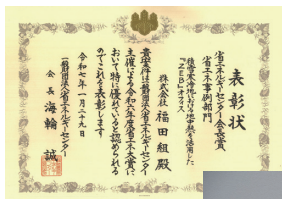 表彰状
省エネルギーセンター会長賞
省エネ事例部門
積雪寒冷地における地中熱を活用した
『ZEB』オフィス
株式会社 福田組 殿
貴案件は一般財団法人省エネルギーセンター
主催による令和六年度省エネ大賞に
おいて特に優れていると認められる
のでこれを表彰します
令和七年一月二十九日
一般財団法人省エネルギーセンター
会長 海輪 誠